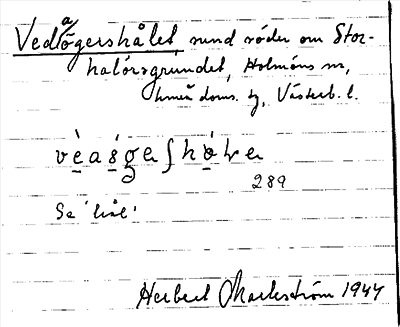 Vedaögershålet sund söder om Stor-
halörsgrundet, Holmöns sn,
Umeå doms. tg, Västerb. l.
289
Se 'hål'
Herbert Markström 1944